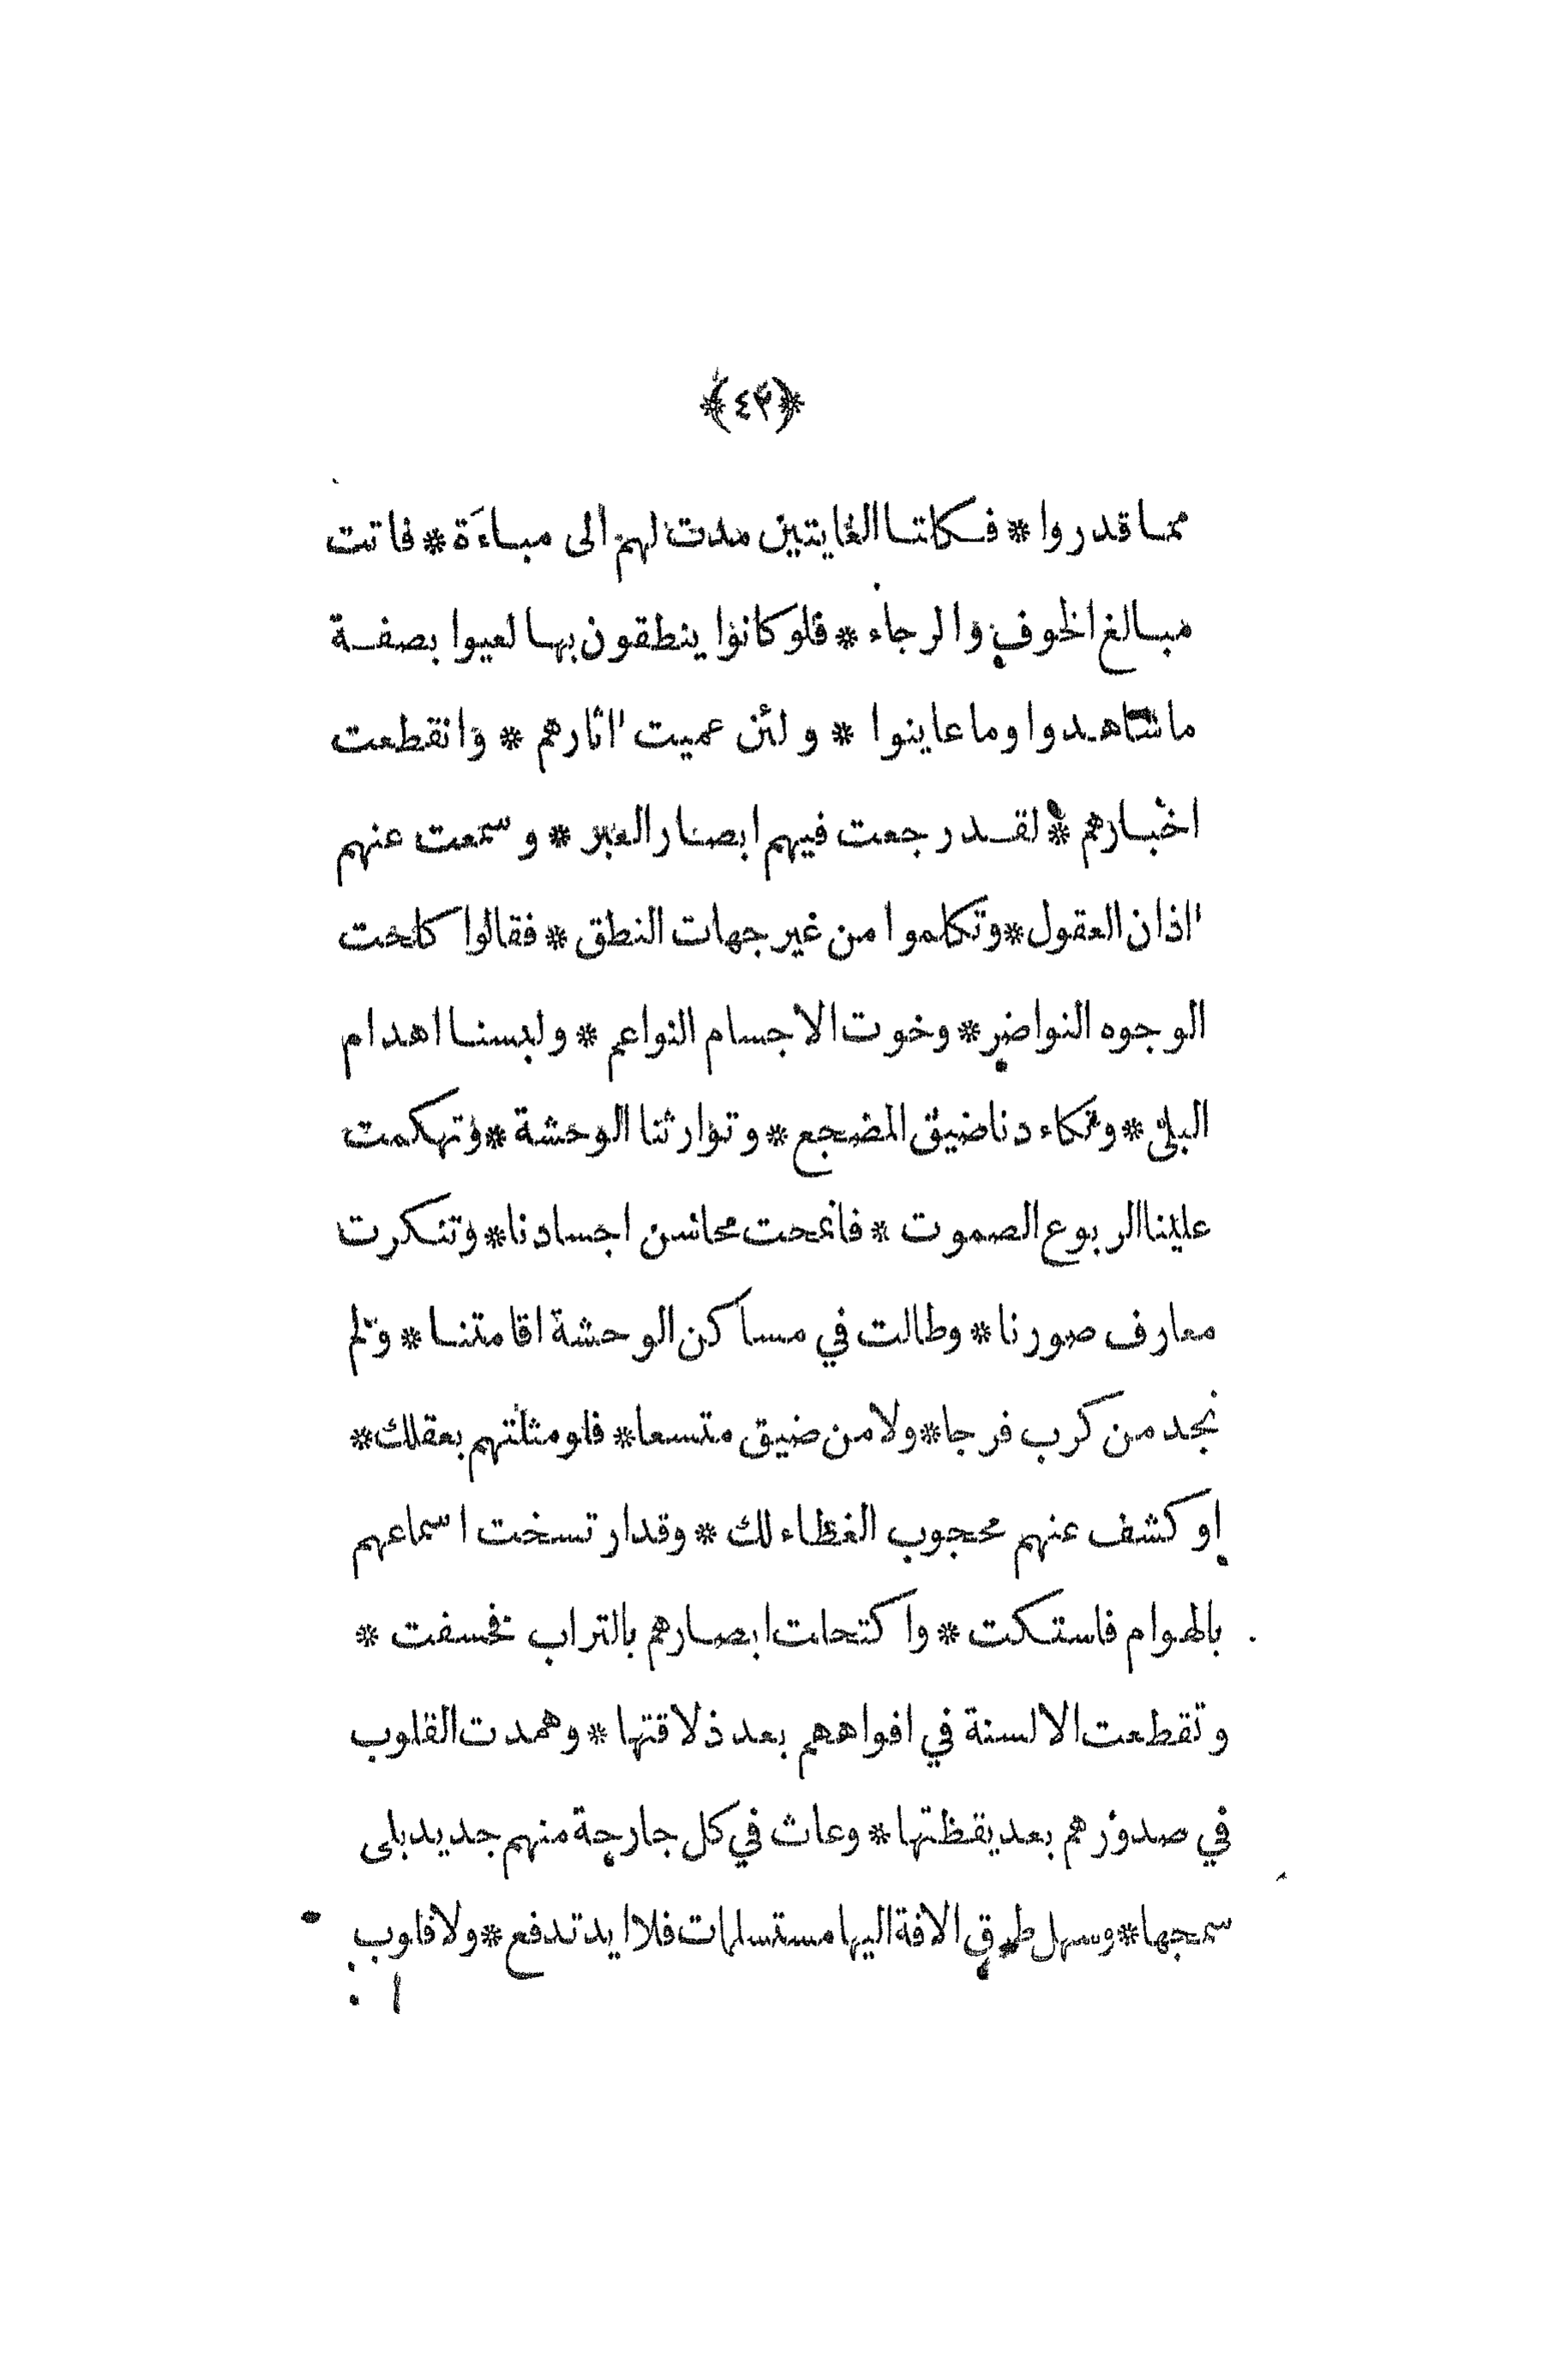 ﴿٤٢﴾
مما قدروا * فكلتا الغايتين مدت لهم الى مباءة * فاتت
مبالغ الخوف والرجاء * فلو كانوا ينطقون بها لعيوا بصفة
ما شاهدوا وما عاينوا * ولئن عميت اثارهم * وانقطعت
اخبارهم * لقد رجعت فيهم ابصار العبر * وسمعت عنهم
اذان العقول * وتكلموا من غير جهات النطق * فقالوا كلحت
الوجوه النواضر * وخوت الاجسام النواعم * ولبسنا اهدام
البلى * وتكاءدنا ضيق المضجع * وتوارثنا الوحشة * وتهكمت
علينا الربوع الصموت * فانمحت محاسن اجسادنا * وتنكرت
معارف صورنا * وطالت في مساكن الوحشة اقامتنا * ولم
نجد من كرب فرجا * ولا من ضيق متسعا * فلو مثلتهم بعقلك *
او كشف عنهم محجوب الغطاء لك * وقد ارتسخت اسماعهم
بالهوام فاستكت * واكتحلت ابصارهم بالتراب فخسفت *
وتقطعت الالسنة في افواههم بعد ذلاقتها * وهمدت القلوب
في صدورهم بعد يقظتها * وعاث في كل جارحة منهم جديد بلى
سمجها * وسهل طرق الافة اليها مستسلمات فلا ايد تدفع * ولا قلوب